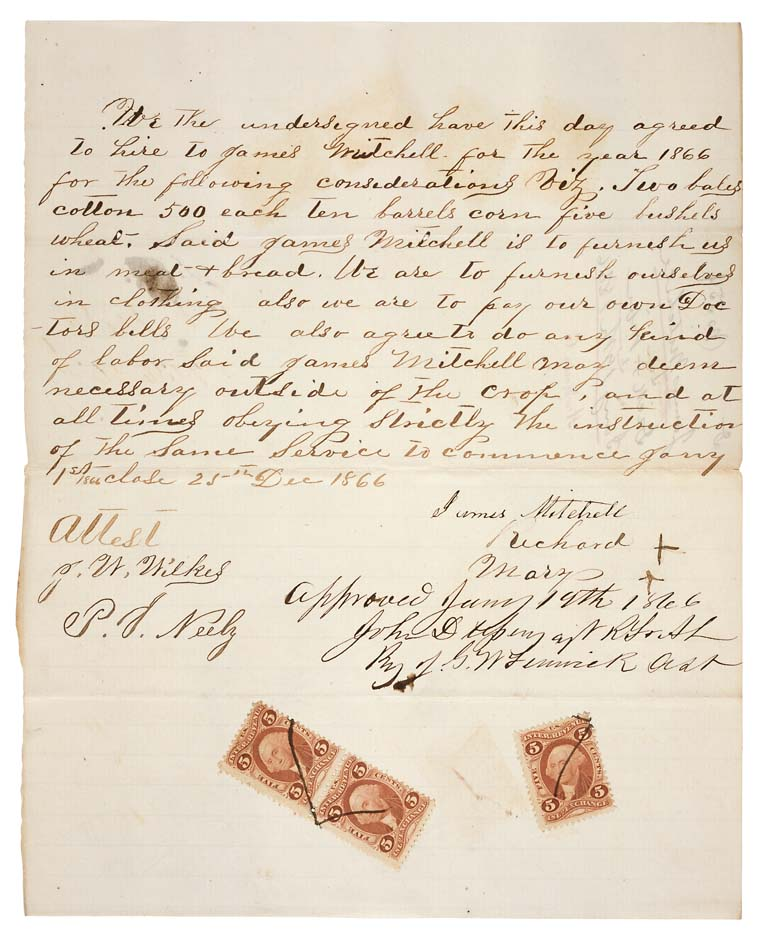 We the undersigned have this day agreed
to hire to James Mitchell for the year 1866
for the following considerations Viz. Two bales
cotton 500 each ten barrels corn five bushels
wheat. Said James Mitchell is to furnish us
in meat + bread. We are to furnish ourselves
in clothing also we are to pay our own Doc
-tors bills We also agree to do any kind
of labor said James Mitchell may deem
necessary outside of the crop, and at
all times obeying strictly the instruction
of the same Service to commence Jany
1st 1866 close 25th Dec 1866
James Mitchell
Attest
Richard +
J. W. Wilkes
Mary +
Approved Jany 19th 1866
P. J. Neely
John D
By G. W Fennick
U.S.
INTER. REVENUE
5 5
FIVE CENTS
5 5
EXCHANGE
U.S.
INTER. REVENUE
5 5
FIVE CENTS
5 5
EXCHANGE
U.S.
INTER. REVENUE
5 5
FIVE CENTS
5 5
EXCHANGE